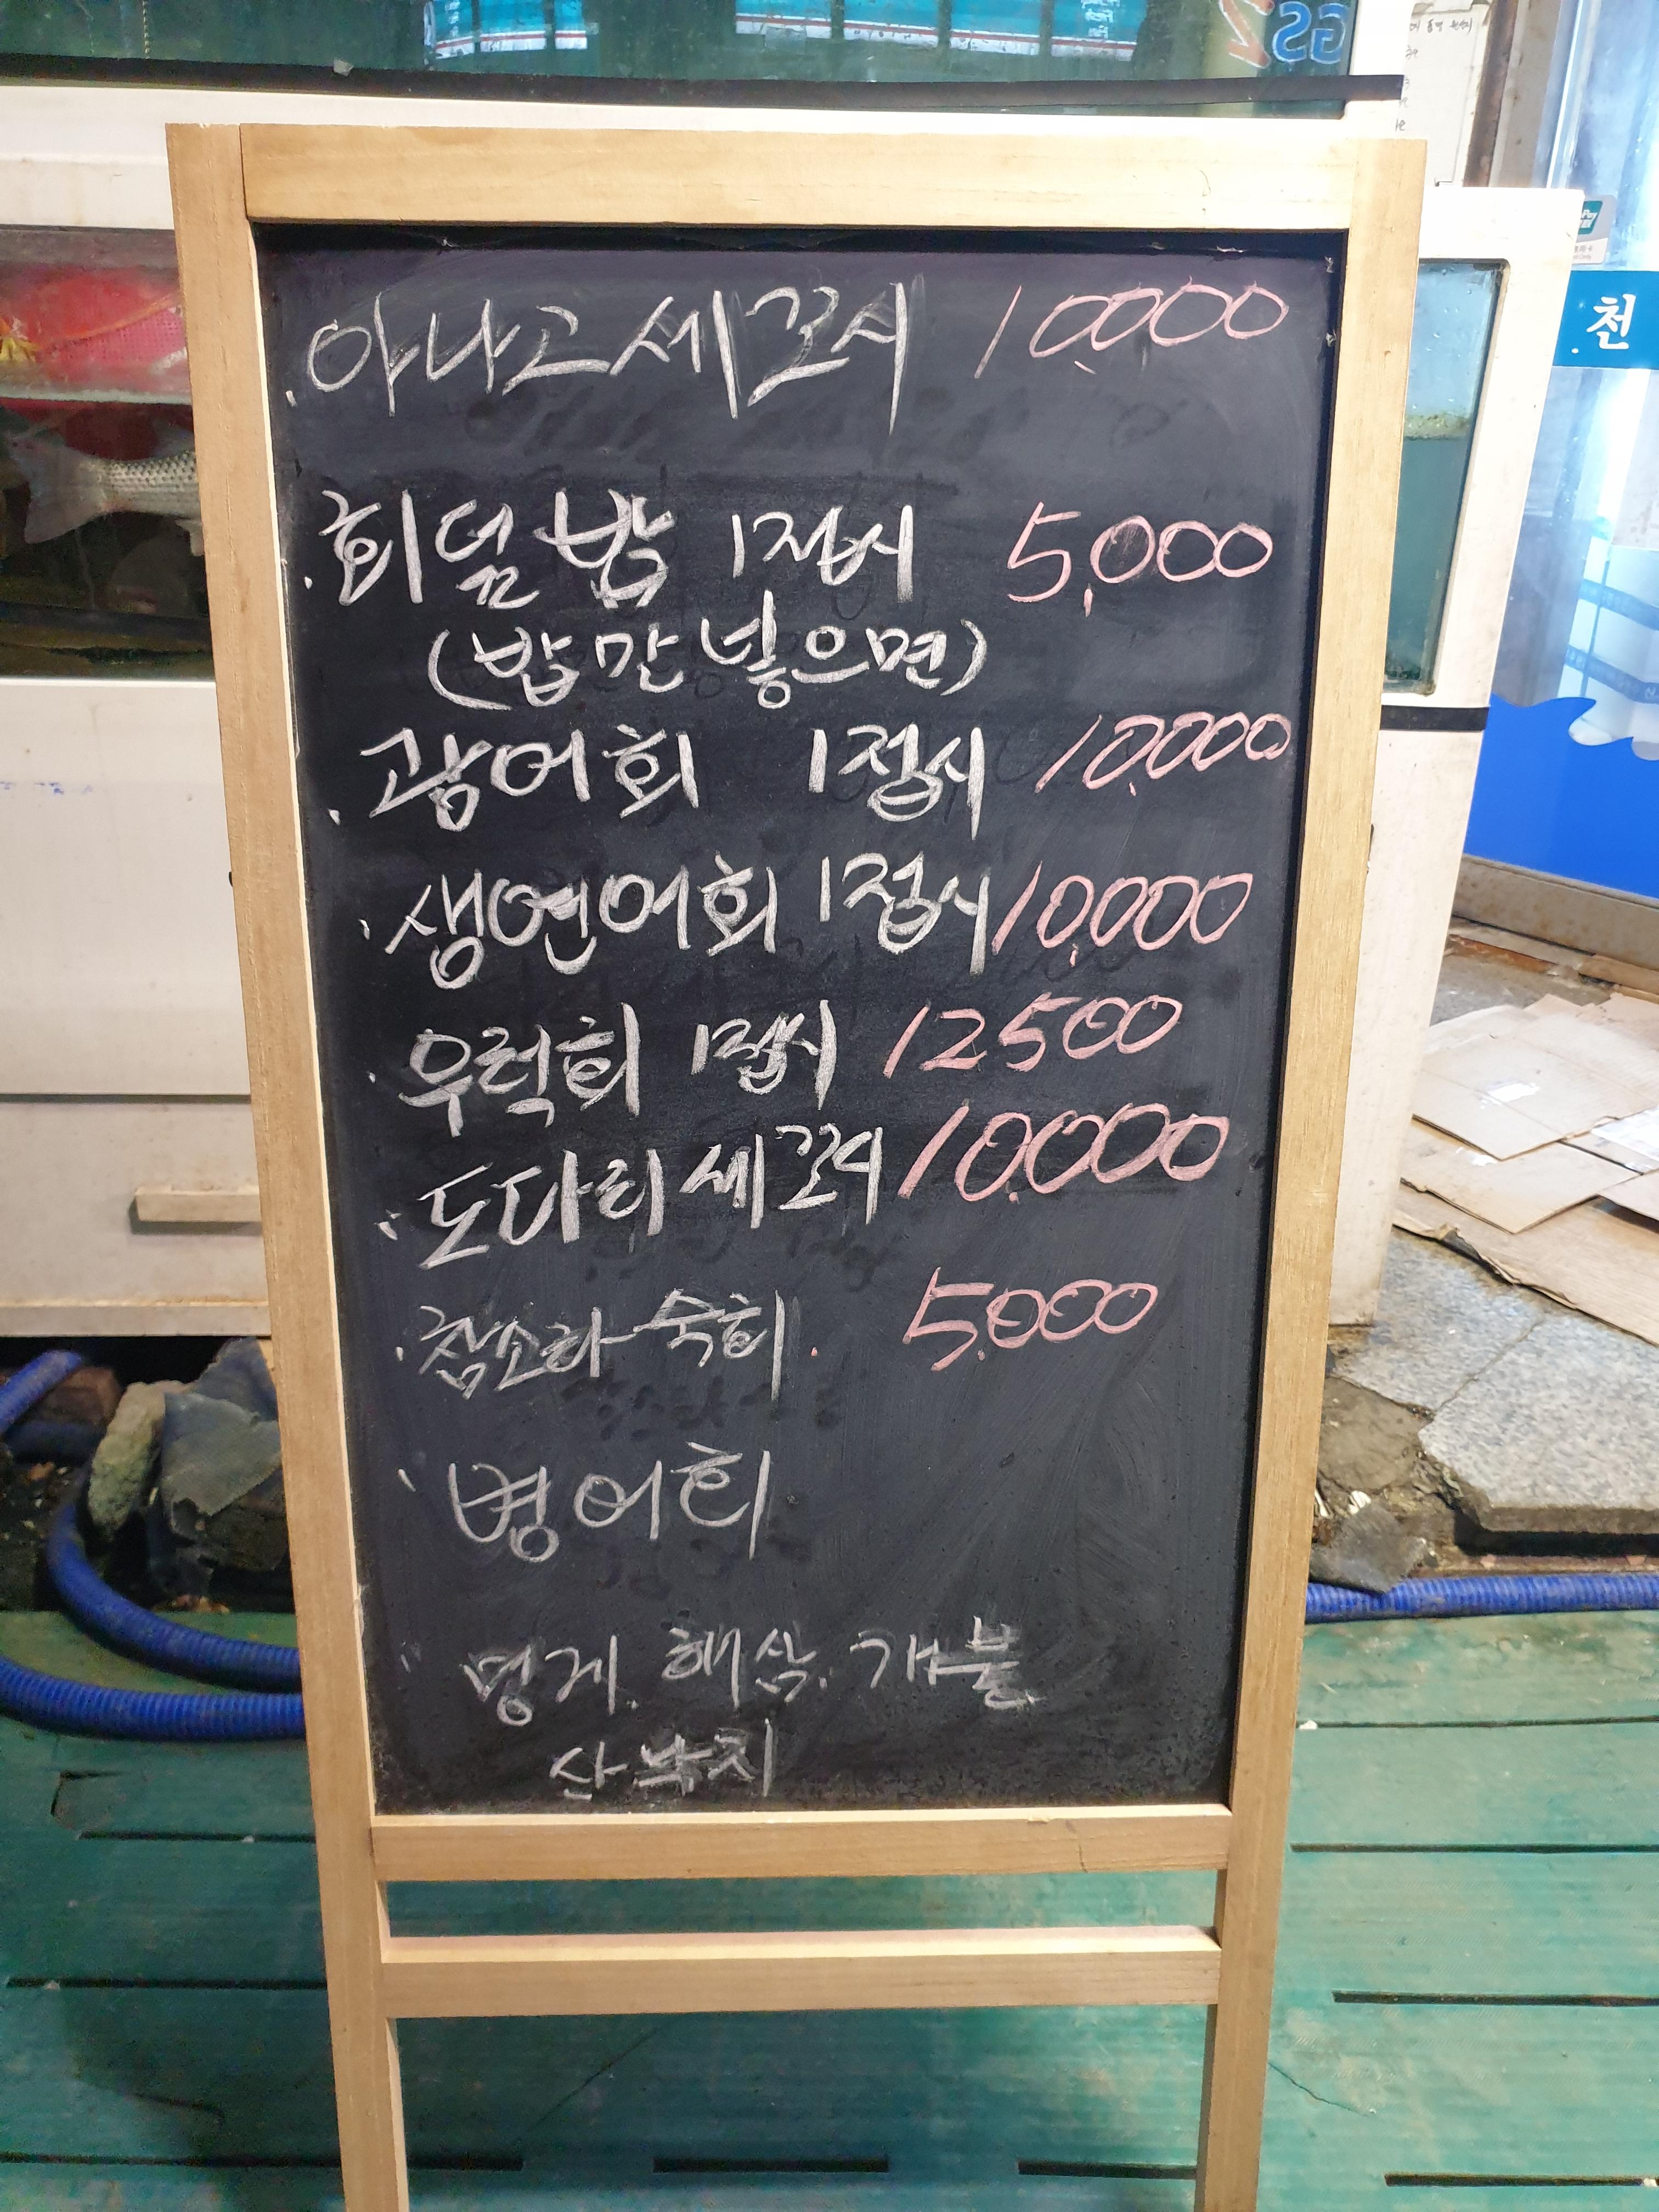 GS2
천
. 아나고세꼬시 10,000
. 회덮밥 1접시 5,000
(밥만넣으면)
. 광어회 1접시 10,000
. 생연어회 1접시 10,000
. 우럭회 1접시 12500
. 도다리세꼬시 10,000
. 참소라숙회. 5,000
. 병어회
. 멍게. 해삼. 개불
산낙지